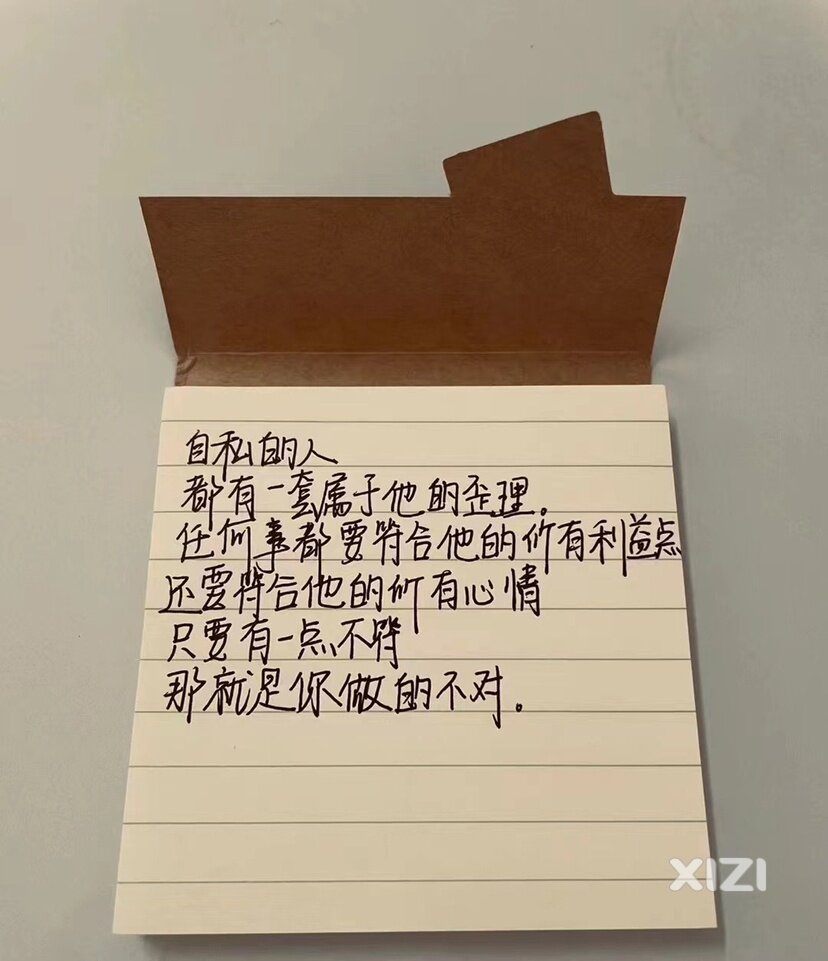 自私的人
都有一套属于他的歪理.
任何事都要符合他的所有利益点
还要符合他的所有心情
只要有一点不符
那就是你做的不对。
XIZI